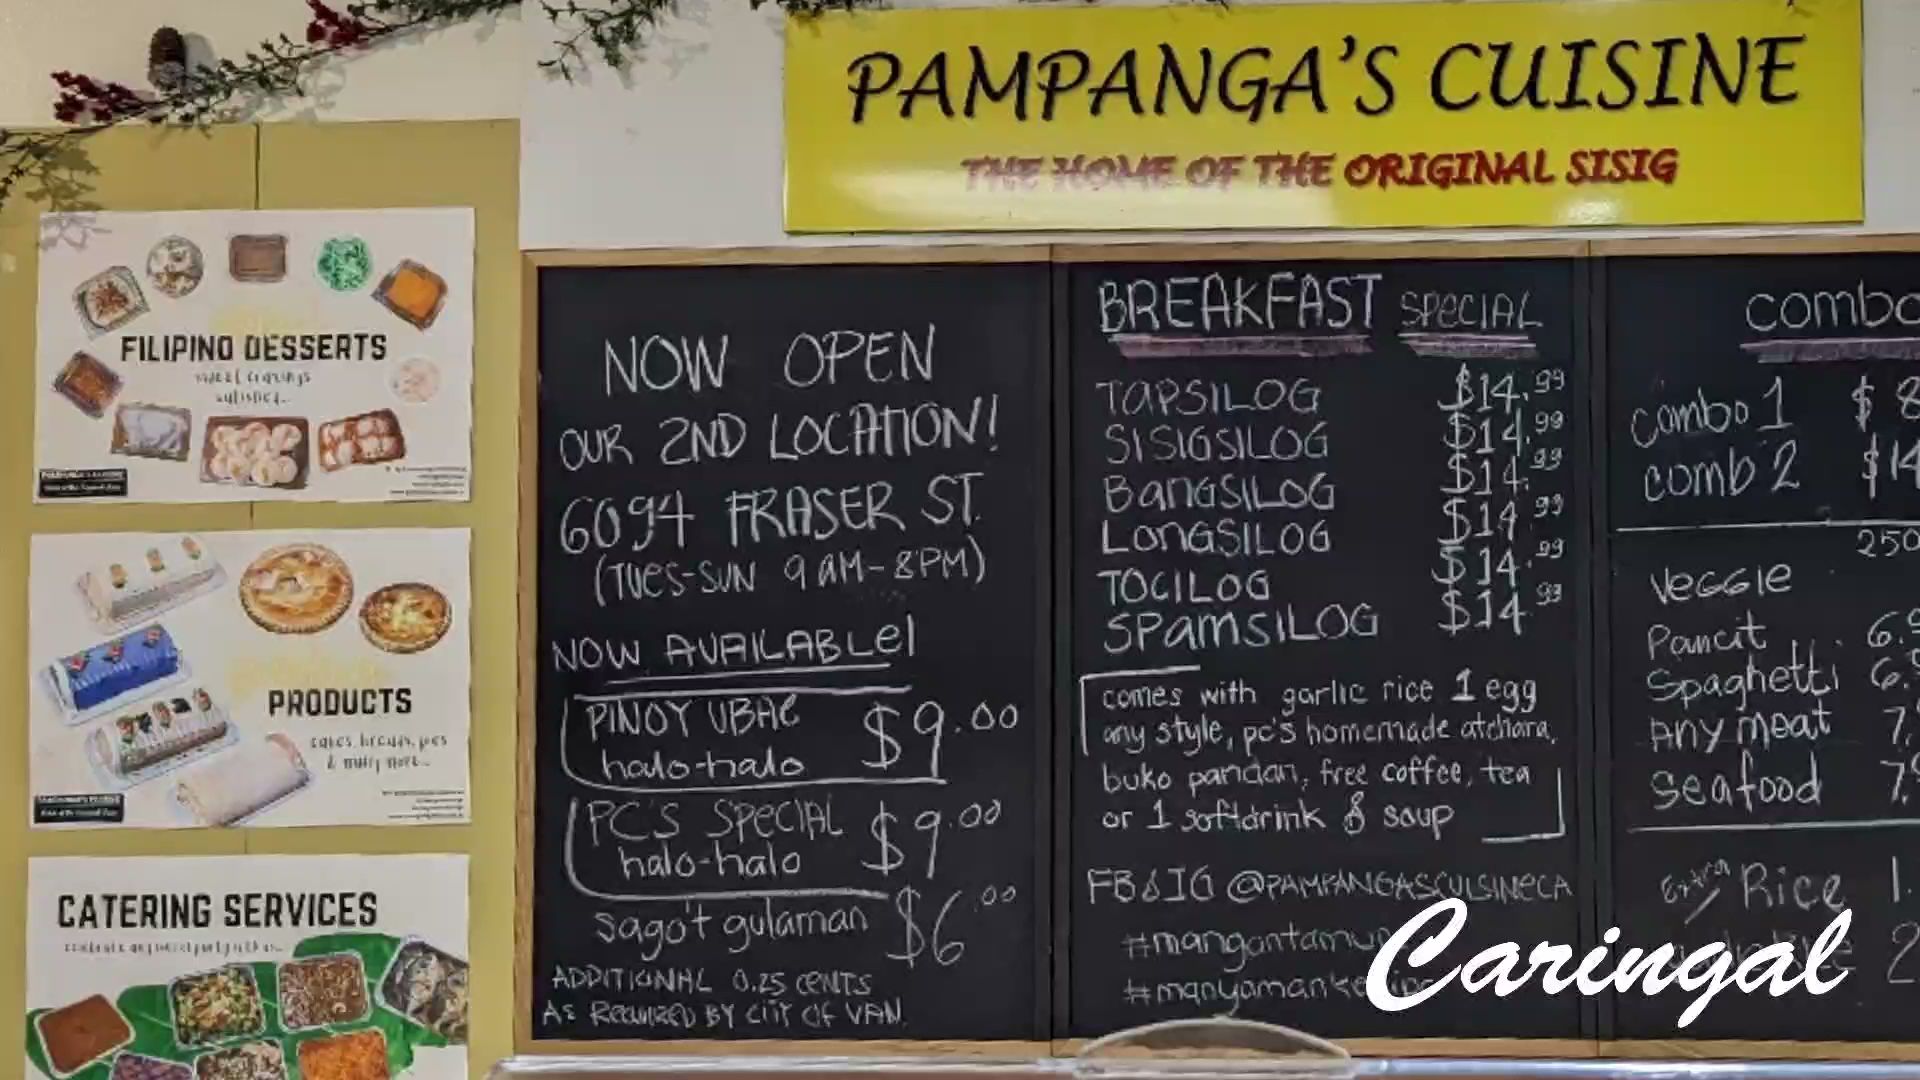 PAMPANGA'S CUISINE
THE HOME OF THE ORIGINAL SISIG
FILIPINO DESSERTS
sweet cravings
satisfied...
PRODUCTS
cakes, breads, pies
& many more...
CATERING SERVICES
NOW OPEN
OUR 2ND LOCATION!
6094 FRASER ST.
(TUES-SUN 9AM-8PM)
NOW AVAILABLE!
PINOY UBAE
halo-halo $9.00
PC'S SPECIAL
halo-halo $9.00
sago't gulaman $6.00
ADDITIONAL 0.25 CENTS
AS REQUIRED BY CITY OF VAN.
BREAKFAST SPECIAL
TAPSILOG $14.99
SISIGSILOG $14.99
BANGSILOG $14.99
LONGSILOG $14.99
TOCILOG $14.99
SPAMSILOG $14.99
comes with garlic rice 1 egg
any style, pc's homemade atchara,
buko pandan, free coffee, tea
or 1 softdrink & soup
FB & IG @PAMPANGASCUISINECA
combo
combo 1 $8
comb 2 $14
250
Veggie
Pancit 6.
Spaghetti 6.
Any meat 7.
seafood 7.
Extra Rice 1.
2
Caringal